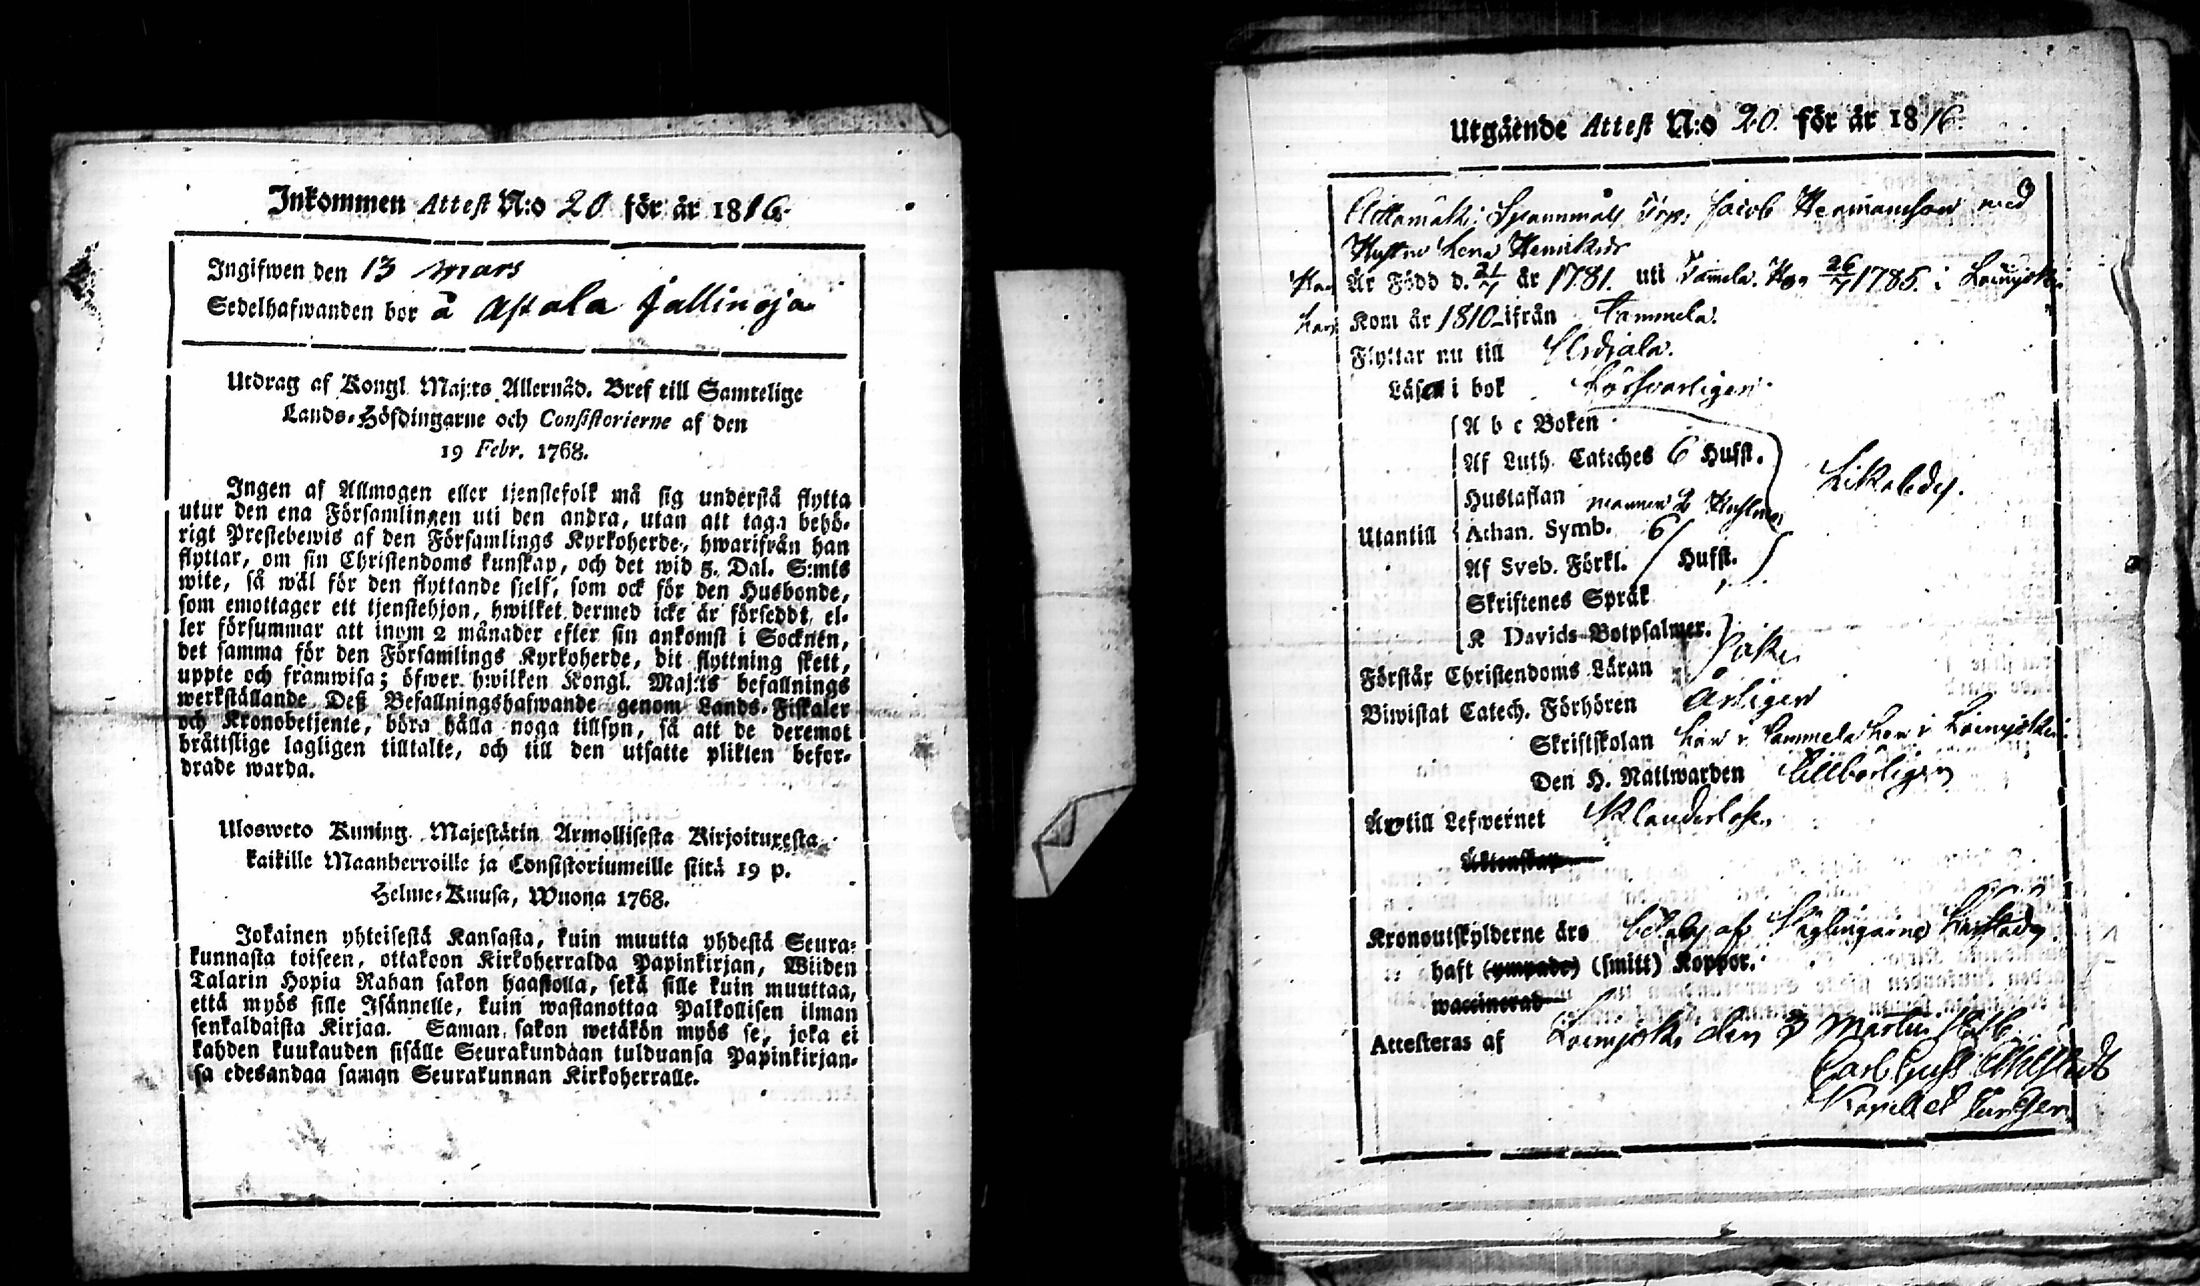 Inkommen Attest N:o 20 för år 1816.
Ingifwen den 13 Mars
Sedelhafwanden bor å Astala Jallinoja
Utdrag af Kongl. Maj:ts Allernåd. Bref till Samtelige
Lands-Höfdingarne och Consistorierne af den
19 Febr. 1768.
Ingen af Allmogen eller tjenstefolk må sig understå flytta
utur den ena Församlingen uti den andra, utan att taga behö-
rigt Prestebewis af den Församlings Kyrkoherde, hwarifrån han
flyttar, om sin Christendoms kunskap, och det wid 5. Dal. S:mts
wite, så wäl för den flyttande sjelf, som ock för den Husbonde,
som emottager ett tjenstehjon, hwilket dermed icke är försedt, el-
ler försummar att inom 2 månader efter sin ankomst i Socknen,
det samma för den Församlings Kyrkoherde, dit flyttning skett,
uppte och framwisa; öfwer hwilken Kongl. Maj:ts befallnings
werkställande Deß Befallningshafwande genom Lands-Fiskaler
och Kronobetjente, böra hålla noga tillsyn, så att de deremot
bråttslige lagligen tilltalte, och till den utsatte plikten befor-
drade warda.
Ulosweto Kuning. Majestätin Armollisesta Kirjoituxesta
kaikille Maanherroille ja Consistoriumeille siitä 19 p.
Helme-Kuusa, Wuona 1768.
Jokainen yhteisestä Kansasta, kuin muutta yhdestä Seura-
kunnasta toiseen, ottakoon Kirkoherralda Papinkirjan, Wiiden
Talarin Hopia Rahan sakon haastolla, sekä sille kuin muuttaa,
että myös sille Isännelle, kuin wastanottaa Palkollisen ilman
senkaldaista Kirjaa. Saman sakon wetäkön myös se, joka ei
kahden kuukauden sisälle Seurakundaan tulduansa Papinkirjan-
sa edesandaa saman Seurakunnan Kirkoherralle.
Utgående Attest N:o 20. för år 1816.
Spannmåls Torp. Jacob Hermansson med
Hustru Lena Henriksdr
Han Är Född d. 21/7 år 1781. uti Tamela. Hon 26/7 1785. i Loimjoki
han Kom år 1810 ifrån Tammela.
Flyttar nu till Urdiala.
Läsen i bok försvarligen.
A b c Boken
Af Luth. Cateches 6 Hufst.
Hustaflan mannen 2 Hustrun
Likaledes.
Utantill Athan. Symb. 6
Af Sveb. Förkl. Hufst.
Skriftenes Språk
K Davids Botpsalmer.
Förstår Christendoms Läran
Biwistat Catech. Förhören Årligen
Skriftskolan han i Tammela hon i Loimjoki
Den H. Nattwarden Tillbörligen
Äro till Lefwernet Klanderlöse
Äktenskap
Kronoutskylderne äro
haft (ympade) (smitt) Koppor.
waccinerad
Attesteras af Loimjoki den 3 Martii 1816.
Carl Gust.